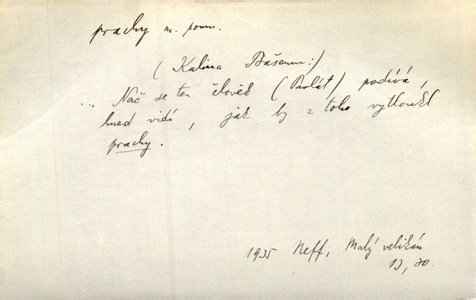 prachy m. pomn.
(Kalina Vášovi:)
... Nač se ten člověk (Pivlát) podívá,
hned vidí, jak by z toho vytloukl
prachy.
1935 Neff, Malý velikán
13, 20